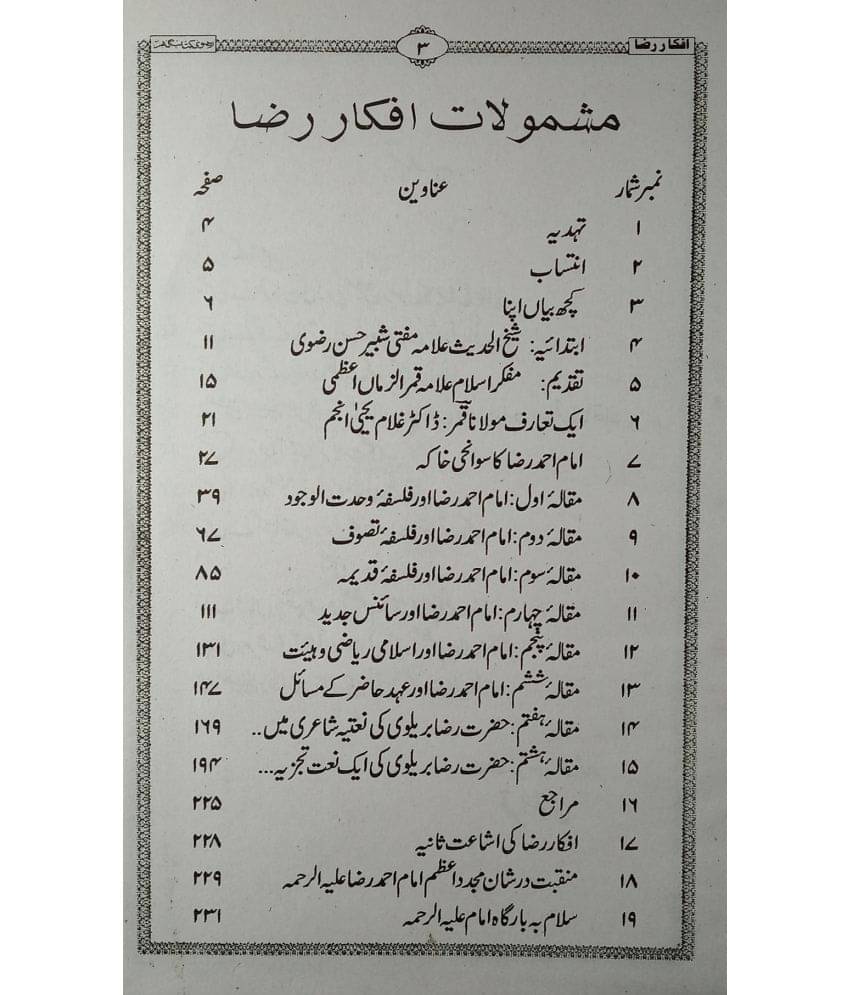 افکار رضا ۳ رضوی کتاب گھر
مشمولات افکار رضا
نمبر شمار عناوین صفحہ
۱ تہدیہ ۴
۲ انتساب ۵
۳ کچھ بیاں اپنا ۶
۴ ابتدائیہ: شیخ الحدیث علامہ مفتی شبیر حسن رضوی ۱۱
۵ تقدیم: مفکر اسلام علامہ قمر الزماں اعظمی ۱۵
۶ ایک تعارف مولانا قمر: ڈاکٹر غلام یحییٰ انجم ۲۱
۷ امام احمد رضا کا سوانحی خاکہ ۲۷
۸ مقالۂ اول: امام احمد رضا اور فلسفۂ وحدت الوجود ۳۹
۹ مقالۂ دوم: امام احمد رضا اور فلسفۂ تصوف ۶۷
۱۰ مقالۂ سوم: امام احمد رضا اور فلسفۂ قدیمہ ۸۵
۱۱ مقالۂ چہارم: امام احمد رضا اور سائنس جدید ۱۱۱
۱۲ مقالۂ پنجم: امام احمد رضا اور اسلامی ریاضی و ہیئت ۱۳۱
۱۳ مقالۂ ششم: امام احمد رضا اور عہد حاضر کے مسائل ۱۴۷
۱۴ مقالۂ ہفتم: حضرت رضا بریلوی کی نعتیہ شاعری میں.. ۱۶۹
۱۵ مقالۂ ہشتم: حضرت رضا بریلوی کی ایک نعت تجزیہ... ۱۹۴
۱۶ مراجع ۲۲۵
۱۷ افکار رضا کی اشاعت ثانیہ ۲۲۸
۱۸ منقبت در شان مجدد اعظم امام احمد رضا علیہ الرحمہ ۲۲۹
۱۹ سلام بہ بارگاہ امام علیہ الرحمہ ۲۳۱